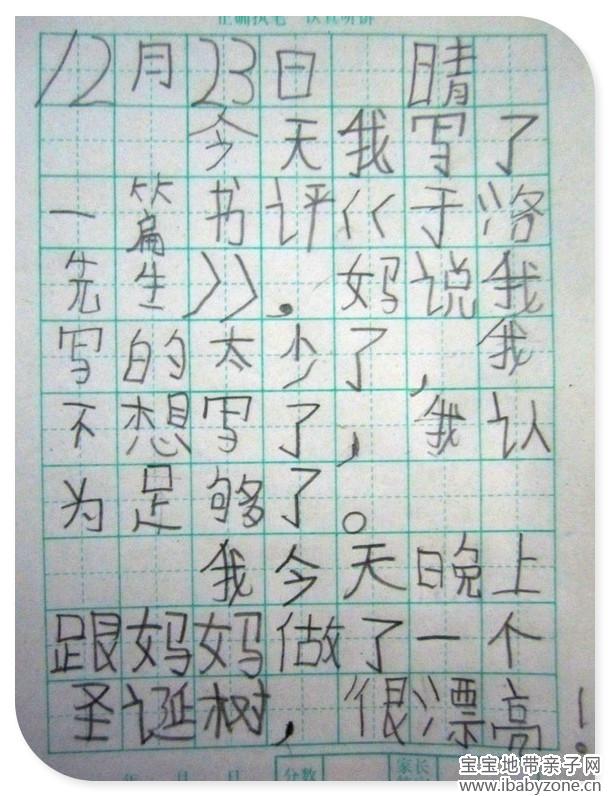 正确执笔 认真听讲
12月23日 晴
今天我写了
一篇书评《于洛
先生》。妈说我
写的太少了,我
不想写了,我认
为足够了。
我今天晚上
跟妈妈做了一个
圣诞树,很漂亮!
年 月 日 分数 家长
宝宝地带亲子网
www.ibabyzone.cn